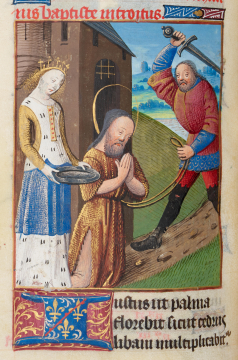 nis baptiste introitus
ustus ut palma
florebit sicut cedrus
libani multiplicabitᷣ